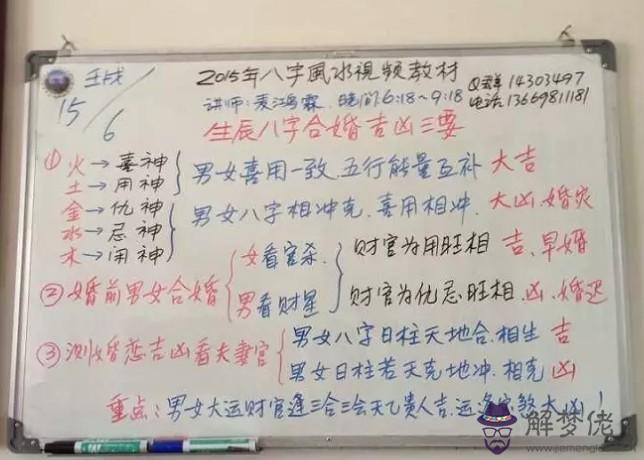 2015年八字風水視频教材
Q群14303497
讲师:麦鸿霖 時间:6:18~9:18
电话:13669811181
15/6
生辰八字合婚吉凶三要
① 火→喜神
土→用神
男女喜用一致.五行能量互补 大吉
金→仇神
水→忌神
木→闲神
男女八字相冲克.喜用相冲. 大凶.婚灾
② 婚前男女合婚
女看官杀. 财官为用旺相 吉.早婚
男看财星 财官为仇忌旺相.凶.婚迟
③ 测婚恋吉凶看夫妻宫
男女八字日柱天地合.相生 吉
男女日柱若天克地冲.相克 凶
重点:男女大运财官逢三合三会天乙贵人吉.运逢 煞大凶!
解梦佬